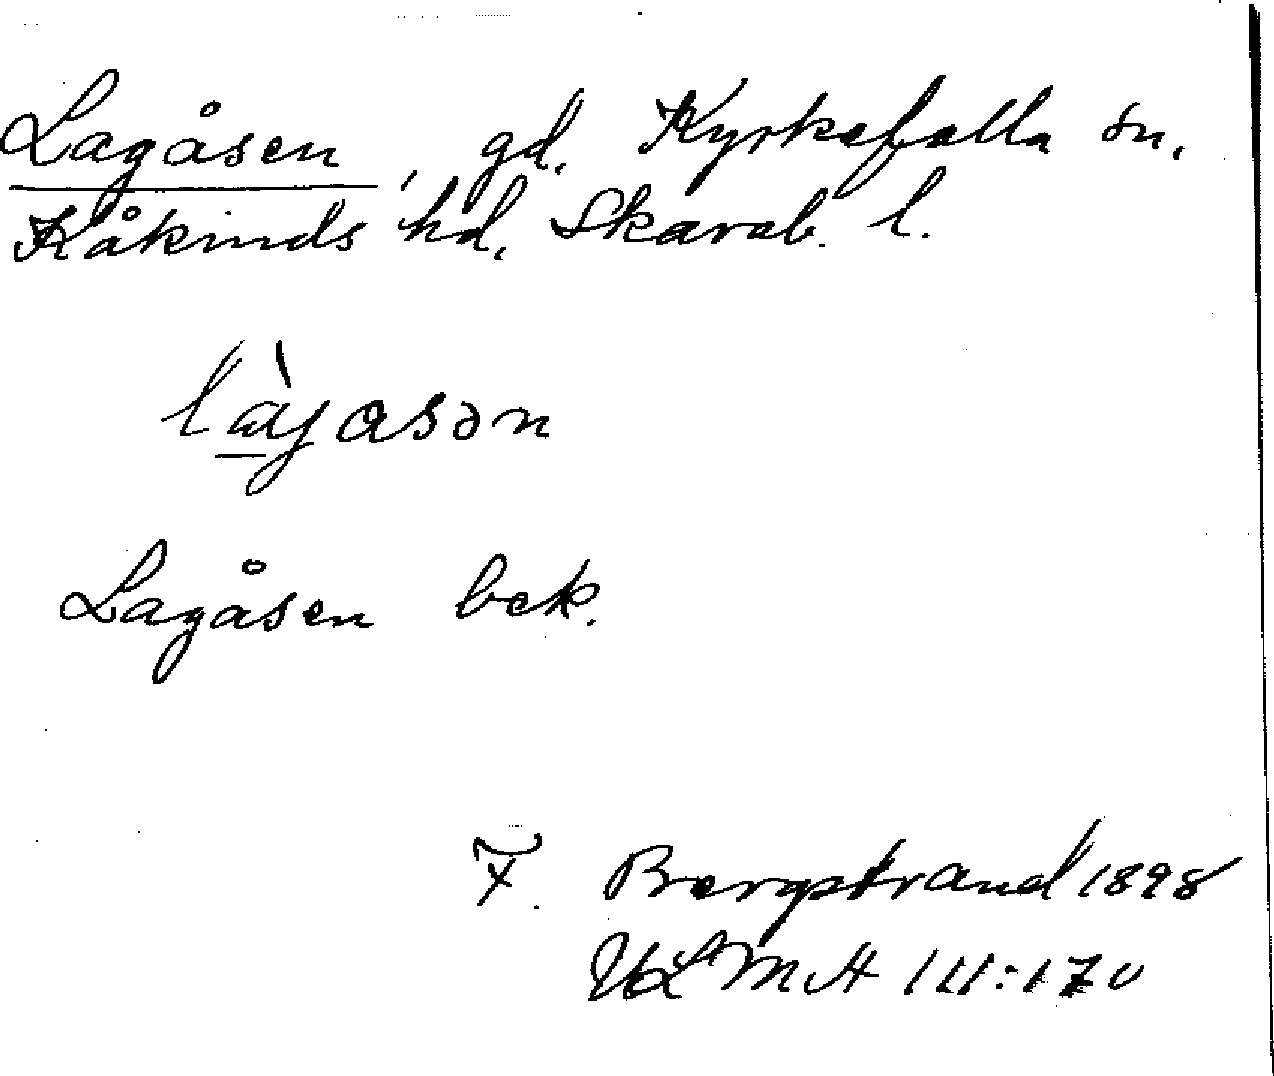 Lagåsen, gd. Kyrkefalla sn.
Kåkinds hd. Skarab. l.
Lagåsen bek.
F. Bergstrand 1898
ULMA 111:170